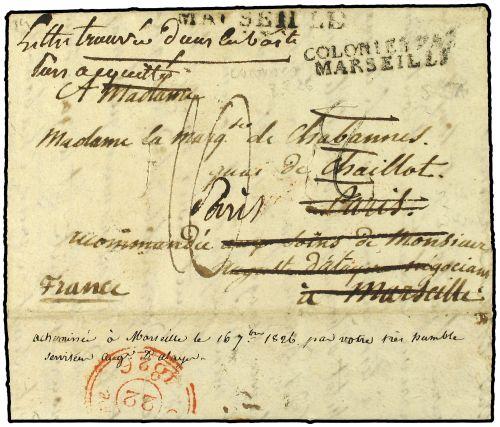 MARSEILLE
Lettre trouvée dans la boîte
COLONIES PAR
MARSEILLE
A Madame
Madame la Marq.se de Chabannes.
quai de Chaillot.
Paris Paris.
recommandée aux soins de Monsieur
négociant
France
à Marseille.
acheminée à Marseille le 16 7bre 1826 par votre très humble
serviteur Aug.
1826
22